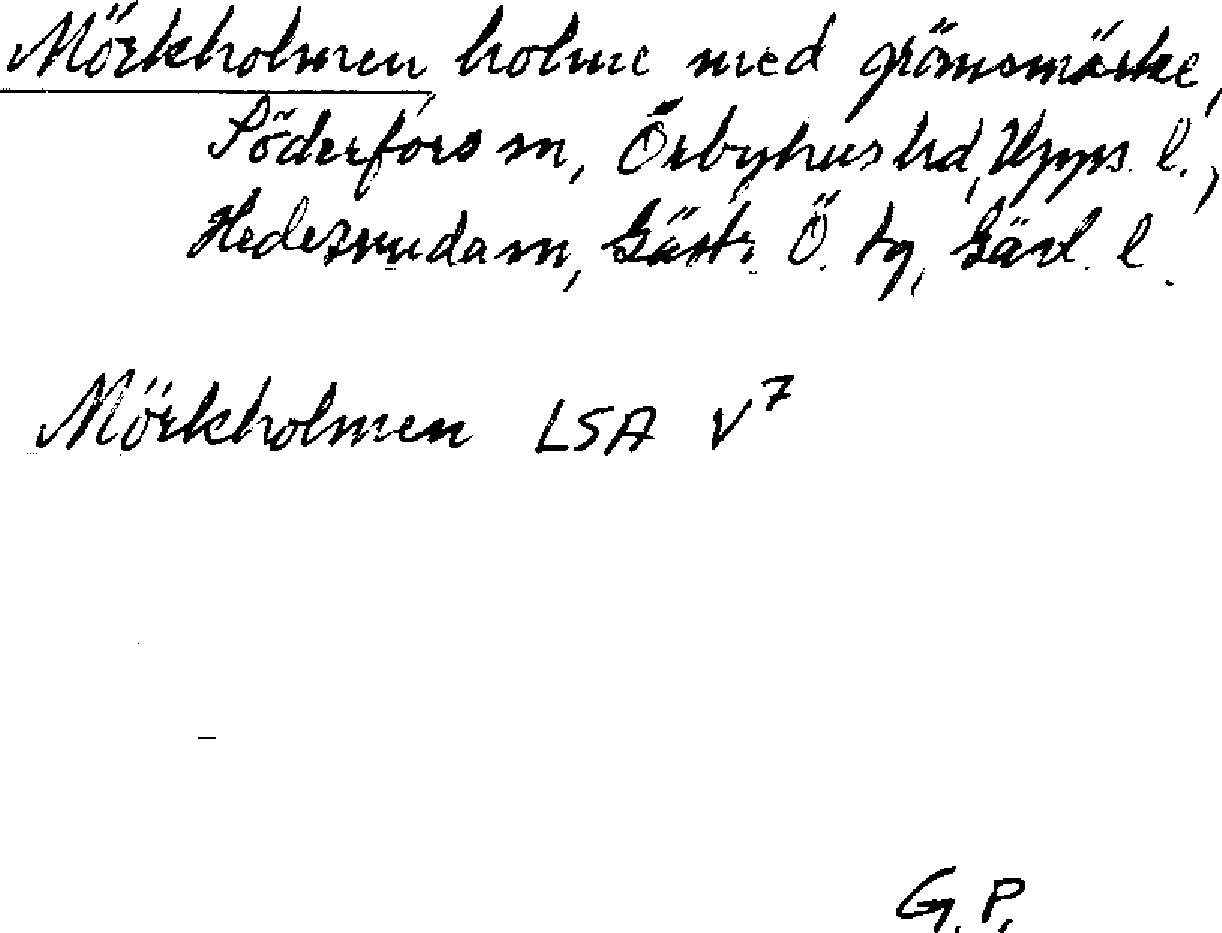 Mörkholmen holme med gränsmärke,
Söderfors sn, Örbyhus hd, Upps. l.,
Hedesunda sn, Gästr. Ö. tg, Gävl. l.
Mörkholmen LSA V7
G.P.